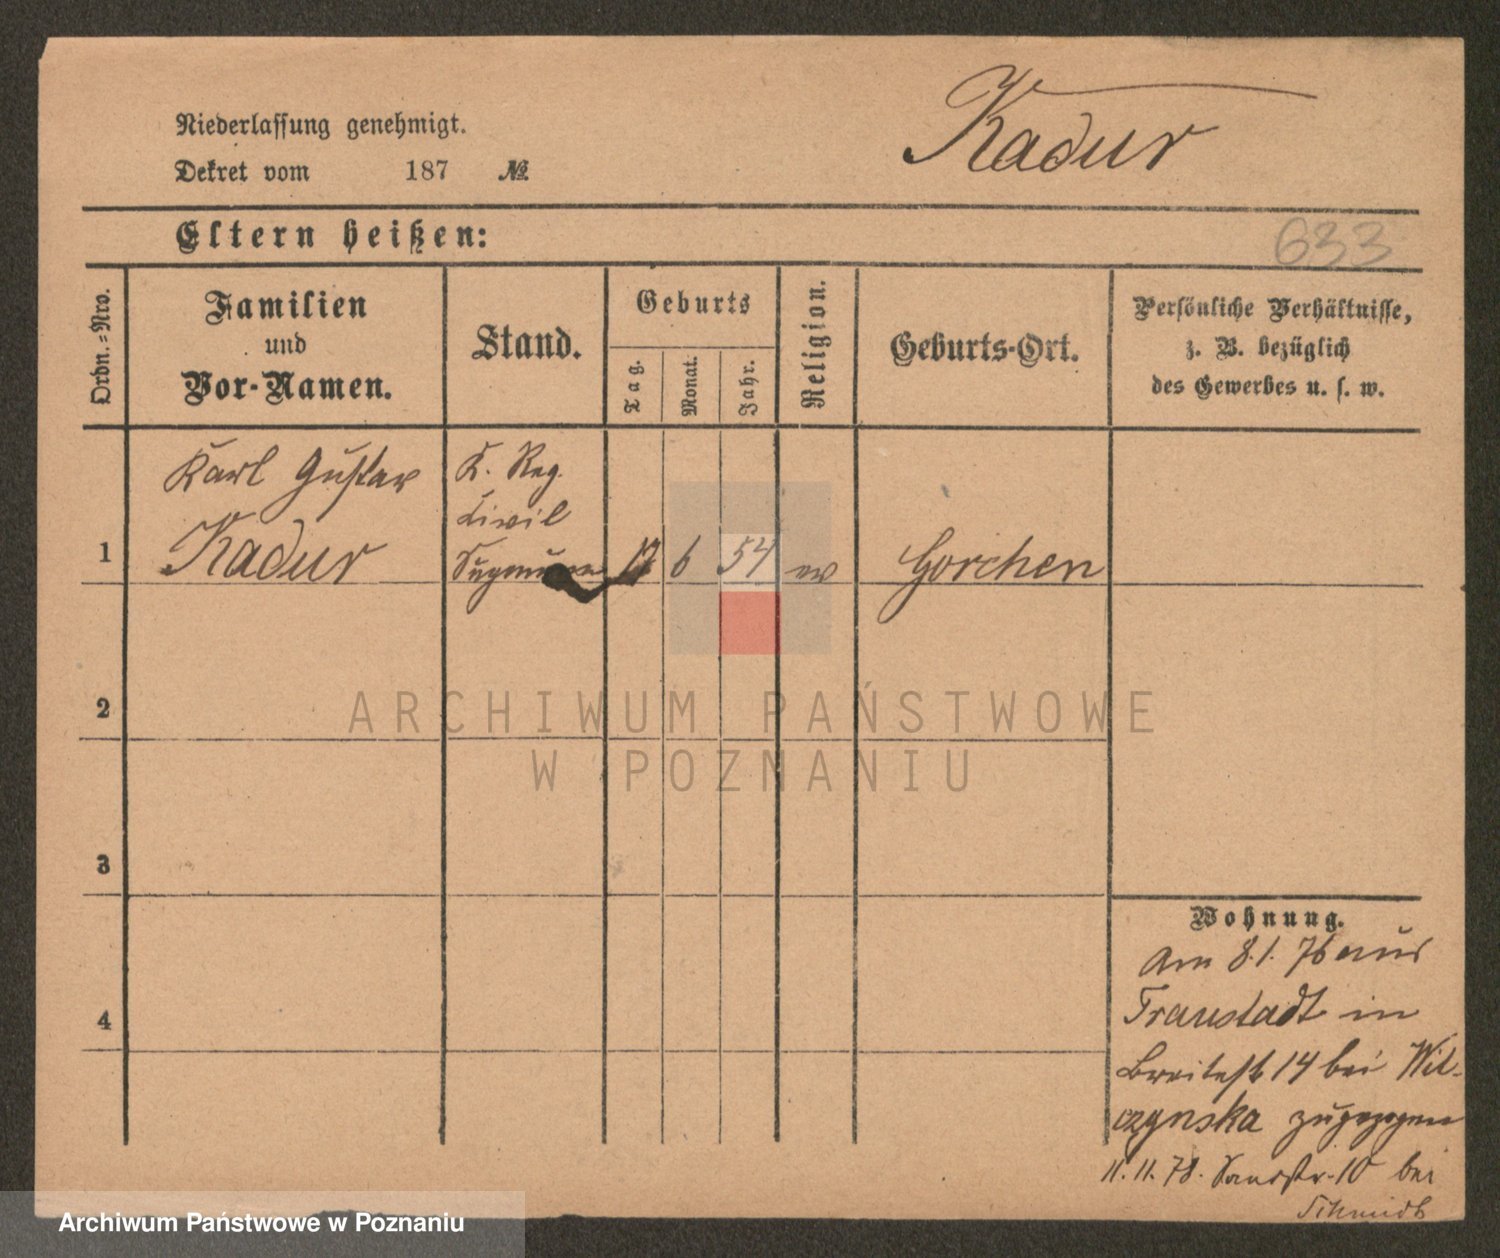 Niederlassung genehmigt.
Kadur
Dekret vom 187 №
Eltern heißen:
633
Ordn.-Nro.
Familien
und
Vor-Namen.
Stand.
Geburts
Tag.
Monat.
Jahr.
Religion.
Geburts-Ort.
Persönliche Verhältnisse,
z. B. bezüglich
des Gewerbes u. s. w.
Karl Gustav
K. Reg.
Civil
1 Kadur 6 54 ev Gorchen
2
3
4
Wohnung.
Am 8.1.76 aus
Fraustadt in
Breitestr 14 bei Wil-
czynska zugezogen
11.11.78. Sandstr. 10 bei
Schmidt
ARCHIWUM PAŃSTWOWE
W POZNANIU
Archiwum Państwowe w Poznaniu